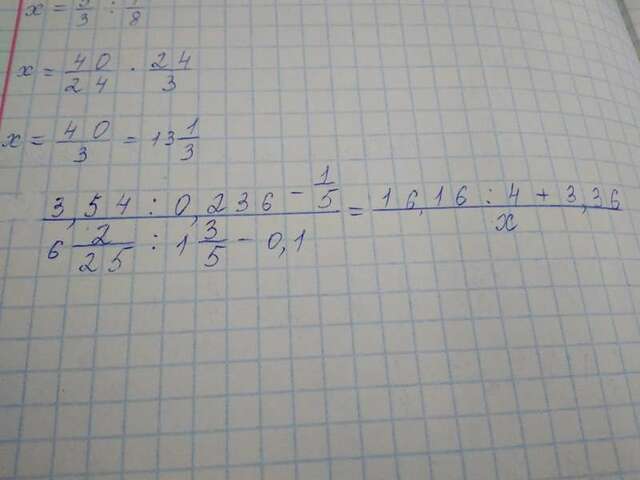 x = 5/3 : 1/8
x = 40/24 · 24/3
x = 40/3 = 13 1/3
3,54 : 0,236 - 1/5 / 6 2/25 : 1 3/5 - 0,1 = 16,16 : 4 + 3,36 / x